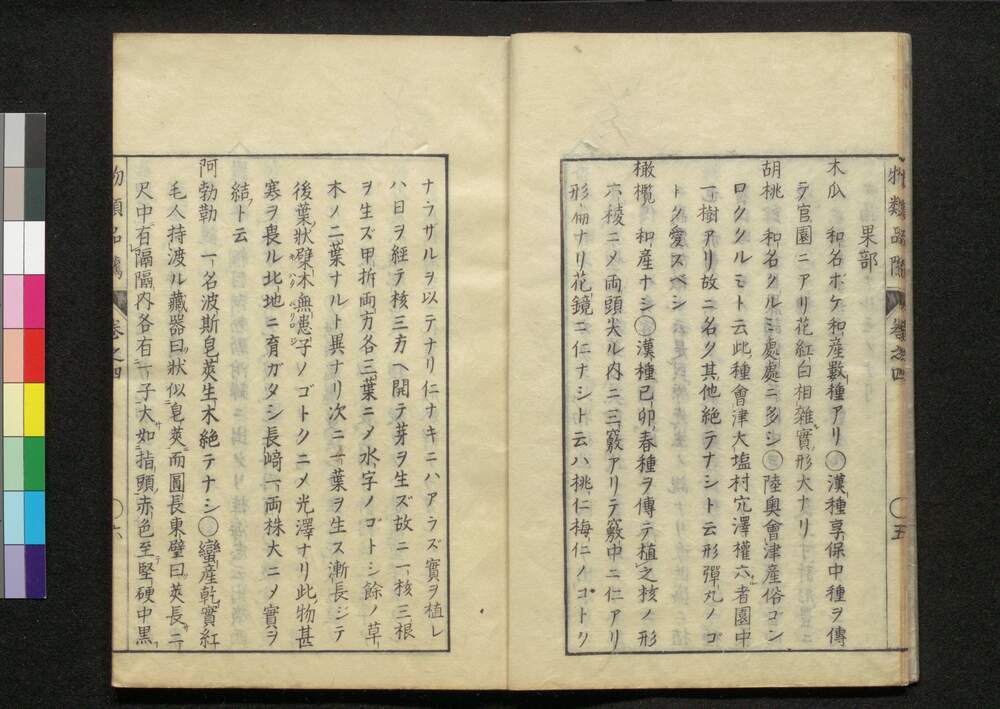 物類品隲 巻之四 五
果部
木瓜 和名ボケ和産數種アリ○漢種享保中種ヲ傳
テ官園ニアリ花紅白相雜實形大ナリ
胡桃 和名クルミ處處ニ多シ○陸奥會津産俗ゴン
ロククルミト云此種會津大塩村穴澤權六者園中
一樹アリ故ニ名ク其他絶テナシト云形彈丸ノゴ
トク愛スベシ
橄欖 和産ナシ○漢種己卯春種ヲ傳テ植之核ノ形
六稜ニメ両頭尖ル内ニ三竅アリテ竅中ニ仁アリ
形扁ナリ花鏡ニ仁ナシト云ハ桃仁梅仁ノコトク
ナラサルヲ以テナリ仁ナキニハアラズ實ヲ植レ
ハ日ヲ經テ核三方ヘ開テ芽ヲ生ズ故ニ一核三根
ヲ生ズ甲折両方各三葉ニメ水字ノゴトシ餘ノ草
木ノ二葉ナルト異ナリ次ニ一葉ヲ生ス漸長ジテ
後葉狀蘗木無患子ソゴトクニメ光澤ナリ此物甚
寒ヲ畏ル北地ニ育ガタシ長﨑一両株大ニメ實ヲ
結ト云
阿勃勒 一名波斯皂莢生木絶テナシ○蠻産乾實紅
毛人持渡ル藏器曰狀似皂莢而圓長東璧曰莢長二
尺中有隔隔内各有一子大如指頭赤色至堅硬中黒
物類品隲 巻之四 六